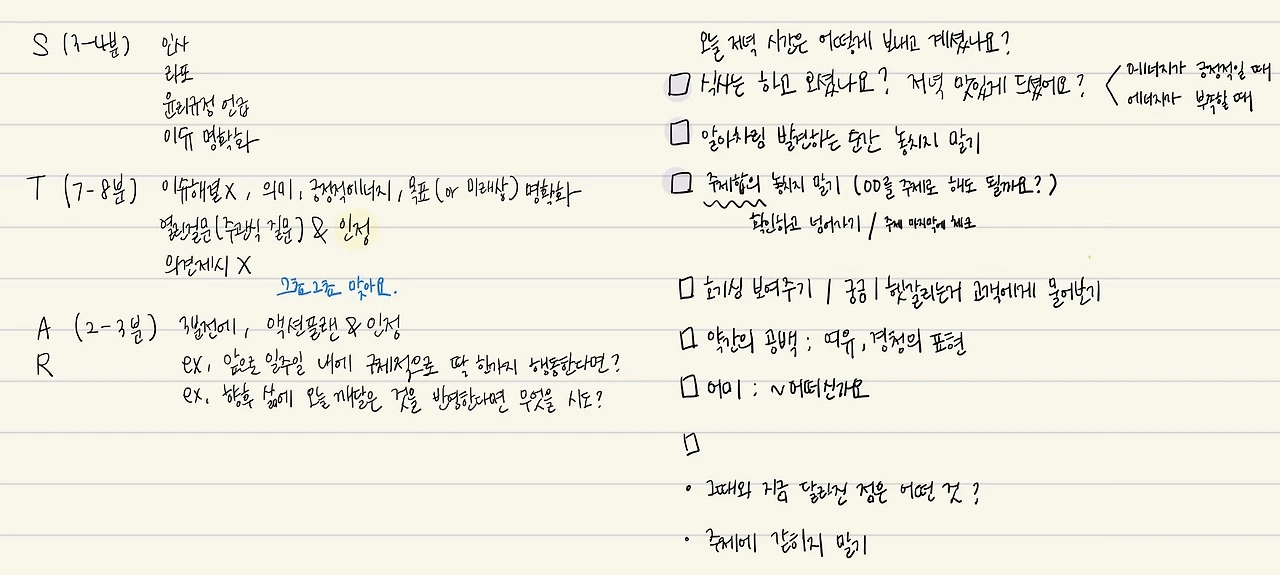 S (3-4분) 인사
라포
윤리규정 언급
이슈 명확화
T (7-8분) 이슈해결X, 의미, 긍정적에너지, 목표(or 미래상) 명확화
열린질문(주관식 질문) & 인정
의견제시 X
그죠그죠 맞아요.
A (2-3분) 3분전에, 액션플랜 & 인정
R ex, 앞으로 일주일 내에 구체적으로 딱 한가지 행동한다면?
ex, 향후 삶에 오늘 깨달은 것을 반영한다면 무엇을 시도?
오늘 저녁 시간은 어떻게 보내고 계셨나요?
□ 식사는 하고 오셨나요? 저녁 맛있게 드셨어요? < 에너지가 긍정적일 때
에너지가 부족할 때
□ 알아차림 발견하는 순간 놓치지 말기
□ 주제합의 놓치지 말기 (00를 주제로 해도 될까요?)
확인하고 넘어가기 / 주제 마지막에 체크
□ 호기심 보여주기 / 궁금 | 헷갈리는거 고객에게 물어보기
□ 약간의 공백 : 여유, 경청의 표현
□ 어미 : ~어떠신가요
□
• 그때와 지금 달라진 점은 어떤 것?
• 주제에 갇히지 말기